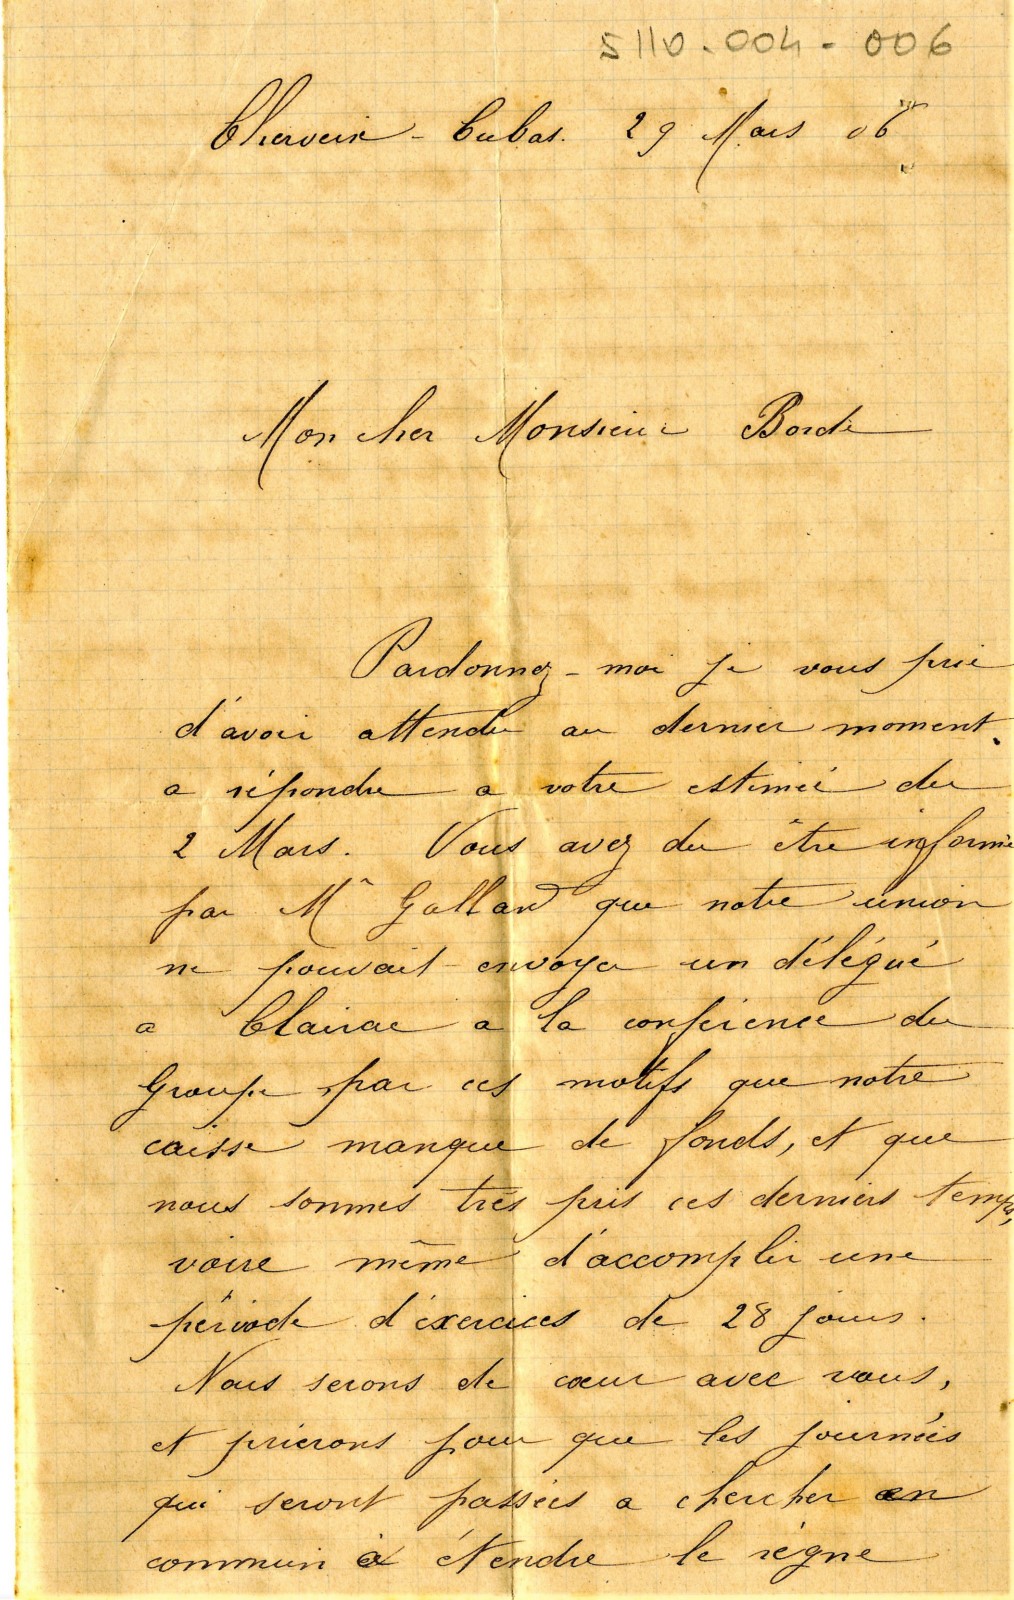 5110.004-006
Cherveix-Cubas. 29 Mars 06
Mon cher Monsieur Borde
Pardonnez-moi je vous prie
d'avoir attendu au dernier moment
a répondre a votre estimée du
2 Mars. Vous avez du être informé
par Mr Galland que notre union
ne pouvait envoyer un délégué
a Clairac a la conférence du
Groupe par ces motifs que notre
caisse manque de fonds, et que
nous sommes très pris ces derniers temps,
voire même d'accomplir une
période d'éxercices de 28 jours.
Nous serons de cœur avec vous,
et prierons pour que les journées
qui seront passées a chercher en
commun à étendre le règne